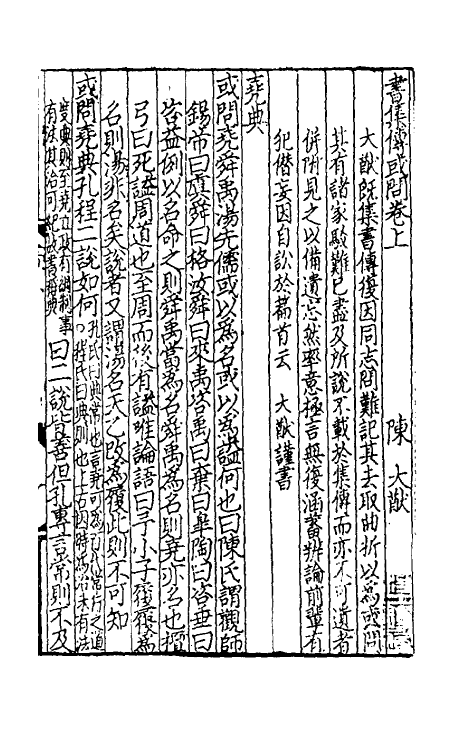 書集傳或問卷上
陳大猷
大猷既集書傳復因同志問難記其去取曲折以爲或問
其有諸家駁難已盡及所說不載於集傳而亦不可遺者
併附見之以備遺忘然率意極言無復涵蓄辨論前輩有
犯僭妄因自訟於篇首云　大猷謹書
堯典
或問堯舜禹湯先儒或以爲名或以爲謚何也曰陳氏謂觀師
錫帝曰虞舜曰格汝舜曰來禹咨禹曰棄曰皋陶曰咨垂曰
咨益例以名命之則舜禹當爲名舜禹爲名則堯亦名也檀
弓曰死謚周道也至周而後有謚唯論語曰予小子履履爲
名則湯非名矣說者又謂湯名天乙改爲履此則不可知
或問堯典孔程二說如何孔氏曰典常也言堯可爲百代常行之道程氏曰典則也上古因時爲治未有法
度典則至堯立政有綱制事有法其治可紀故書稱典曰二說皆善但孔專言常則不及